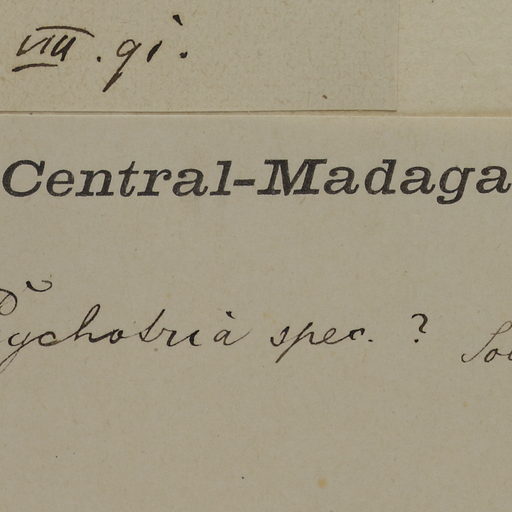 VIII. 91.
Central-Madaga
Psychotria spec. ?